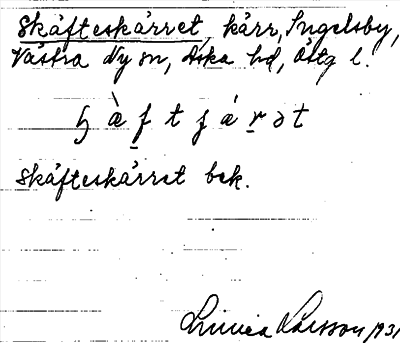 Skäfteskärret, kärr, Ingelsby,
Västra Ny sn, Aska hd, Östg l.
Skäfteskärret bek.
Linnéa Larsson 1931